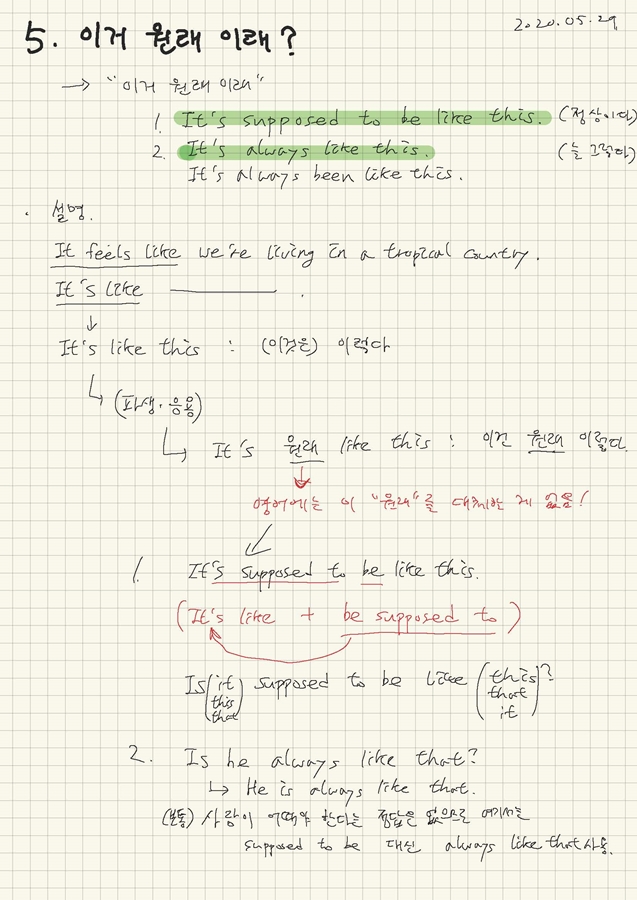 2020.05.29
5. 이거 원래 이래?
→ "이거 원래 이래"
1. It's supposed to be like this. (정상이다)
2. It's always like this. (늘 그렇다)
It's always been like this.
· 설명.
It feels like we're living in a tropical country.
It's like ________ .
↓
It's like this : (이것은) 이렇다
(파생·응용)
It's 원래 like this : 이건 원래 이렇다.
영어에는 이 "원래"를 대체하는 게 없음!
1. It's supposed to be like this.
(It's like + be supposed to)
Is (it this that) supposed to be like (this that it)?
2. Is he always like that?
↳ He is always like that.
(보통) 사람이 어때야 한다는 정답은 없으므로 여기서는
supposed to be 대신 always like that 사용.